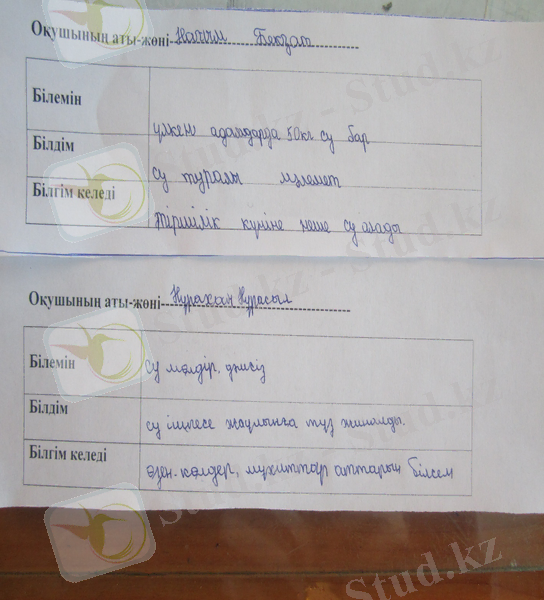 Оқушының аты-жөні- Бекзат
Білемін
үлкен адамдарда 50кг су бар
Білдім
су туралы мәлемет
Білгім келеді
тіршілік күніне неше су алады
Оқушының аты-жөні- Нұрахан Нұрасыл
Білемін су мөлдір, дәмсіз
Білдім су ішпесе жаулынға тұз жиналды.
Білгім келеді өзен. көлдер, мұхиттар аттарын білсем
Stud.kz - Stud.kz
Stud.kz - Stud.kz
Stud.kz - Stud.kz
Stud.kz